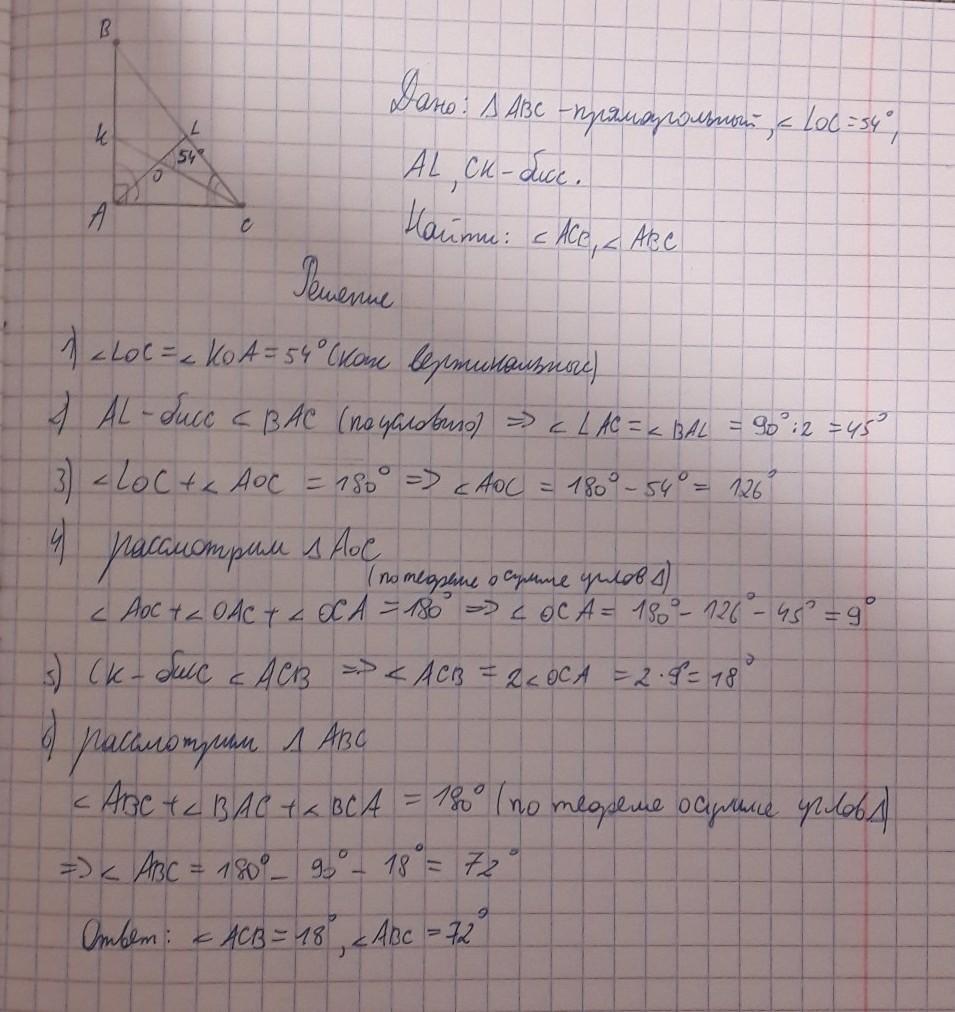 B
K
L
54°
O
A
C
Дано: Δ ABC - прямоугольный, ∠ LOC = 54°,
AL, CK - бисс.
Найти: ∠ ACB, ∠ ABC
Решение
1) ∠LOC = ∠ KOA = 54° (как вертикальные)
2) AL - бисс ∠ BAC (по условию) => ∠ LAC = ∠ BAL = 90° : 2 = 45°
3) ∠LOC + ∠ AOC = 180° => ∠ AOC = 180° - 54° = 126°
4) рассмотрим Δ AOC
(по теореме о сумме углов Δ)
∠ AOC + ∠ OAC + ∠ OCA = 180° => ∠ OCA = 180° - 126° - 45° = 9°
5) CK - бисс ∠ ACB => ∠ ACB = 2∠OCA = 2 · 9° = 18°
6) рассмотрим Δ ABC
∠ ABC + ∠ BAC + ∠ BCA = 180° (по теореме о сумме углов Δ)
=> ∠ ABC = 180° - 90° - 18° = 72°
Ответ: ∠ ACB = 18°, ∠ ABC = 72°